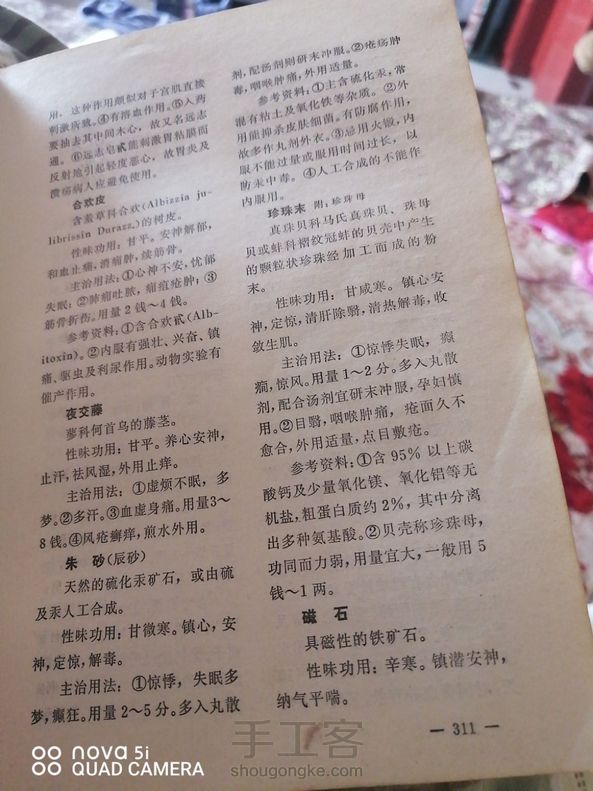 用，这种作用颇似对子宫肌直接
刺激所貌。④有溶血作用。⑤入药
要抽去其中间木心，故又名远志
通。⑥远志皂甙能刺激胃粘膜而
反射地引起轻度恶心，故胃炎及
溃疡病人应避免使用。
合欢皮
含羞草科合欢(Albizzia ju-
librissin Durazz.)的树皮。
性味功用：甘平。安神解郁，
和血止痛，消痈肿，续筋骨。
主治用法：①心神不安，忧郁
失眠；②肺痈吐脓，痈疽疮肿；③
筋骨折伤。用量2钱～4钱。
参考资料：①含合欢甙(Alb-
itoxin)。②内服有强壮、兴奋、镇
痛、驱虫及利尿作用。动物实验有
催产作用。
夜交藤
蓼科何首乌的藤茎。
性味功用：甘平。养心安神，
止汗，祛风湿，外用止痒。
主治用法：①虚烦不眠，多
梦。②多汗。③血虚身痛。用量3～
8钱。④风疮癣痒，煎水外用。
朱 砂(辰砂)
天然的硫化汞矿石，或由硫
及汞人工合成。
性味功用：甘微寒。镇心，安
神，定惊，解毒。
主治用法：①惊悸，失眠多
梦，癫狂。用量2～5分。多入丸散
剂，配汤剂则研末冲服。②疮疡肿
毒，咽喉肿痛，外用适量。
参考资料：①主含硫化汞，常
混有粘土及氧化铁等杂质。②外
用能抑杀皮肤细菌。有防腐作用，
故多作丸剂外衣。③忌用火煅，内
服不能过量或服用时间过长，以
防汞中毒。④人工合成的不能作
内服用。
珍珠末 附：珍珠母
真珠贝科马氏真珠贝、珠母
贝或蚌科褶纹冠蚌的贝壳中产生
的颗粒状珍珠经加工而成的粉
末。
性味功用：甘咸寒。镇心安
神，定惊，清肝除翳，清热解毒，收
敛生肌。
主治用法：①惊悸失眠，癫
痫，惊风。用量1～2分。多入丸散
剂，配合汤剂宜研末冲服，孕妇慎
用。②目翳，咽喉肿痛，疮面久不
愈合，外用适量，点目敷疮。
参考资料：①含95%以上碳
酸钙及少量氧化镁、氧化铝等无
机盐，粗蛋白质约2%，其中分离
出多种氨基酸。②贝壳称珍珠母，
功同而力弱，用量宜大，一般用5
钱～1两。
磁 石
具磁性的铁矿石。
性味功用：辛寒。镇潜安神，
纳气平喘。
— 311 —
nova 5i
QUAD CAMERA
手工客
shougongke.com